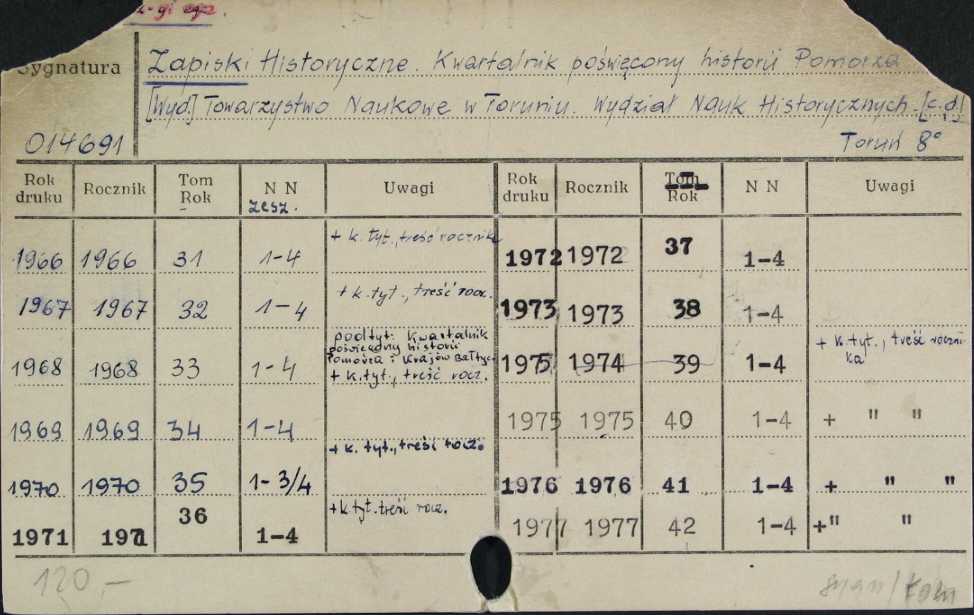 -gi egz.
Sygnatura
Zapiski Historyczne. Kwartalnik poświęcony historii Pomorza
[Wyd.] Towarzystwo Naukowe w Toruniu. Wydział Nauk Historycznych. [c.d.]
014691 Toruń 8°
Rok druku Rocznik Tom Rok N N zesz. Uwagi Rok druku Rocznik Tom Rok N N Uwagi
1966 1966 31 1-4 + k. tyt., treść rocznika 1972 1972 37 1-4
1967 1967 32 1-4 + k. tyt., treść rocz. 1973 1973 38 1-4
1968 1968 33 1-4 podtyt: Kwartalnik poświęcony historii Pomorza i Krajów Bałtyc. + k. tyt., treść rocz. 1975 1974 39 1-4 + k. tyt., treść rocznika
1969 1969 34 1-4 1975 1975 40 1-4 + " "
1970 1970 35 1-3/4 + k. tyt., treść rocz. 1976 1976 41 1-4 + " "
1971 1971 36 1-4 + k tyt. treść rocz. 1977 1977 42 1-4 + " "
120,-